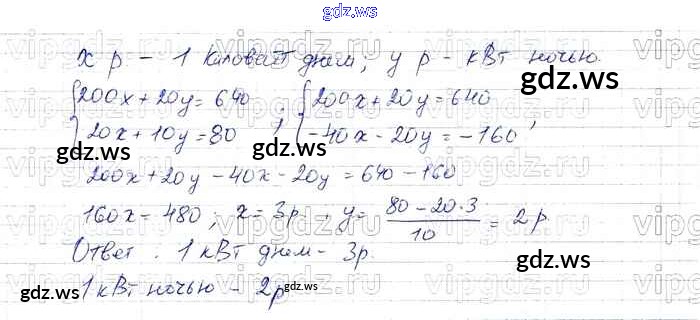 gdz.ws
x р – 1 киловатт днем; y р – кВт ночью.
{200x + 20y = 640 ; {200x + 20y = 640
{20x + 10y = 80 ; {-40x - 20y = -160 ,
gdz.ws gdz.ws gdz.ws
200x + 20y - 40x - 20y = 640 - 160
160x = 480 ; x = 3р. , y = (80 - 20·3)/10 = 2р
Ответ. 1 кВт днем – 3р.
1 кВт ночью – 2р
gdz.ws gdz.ws gdz.ws
vipgdz.ru